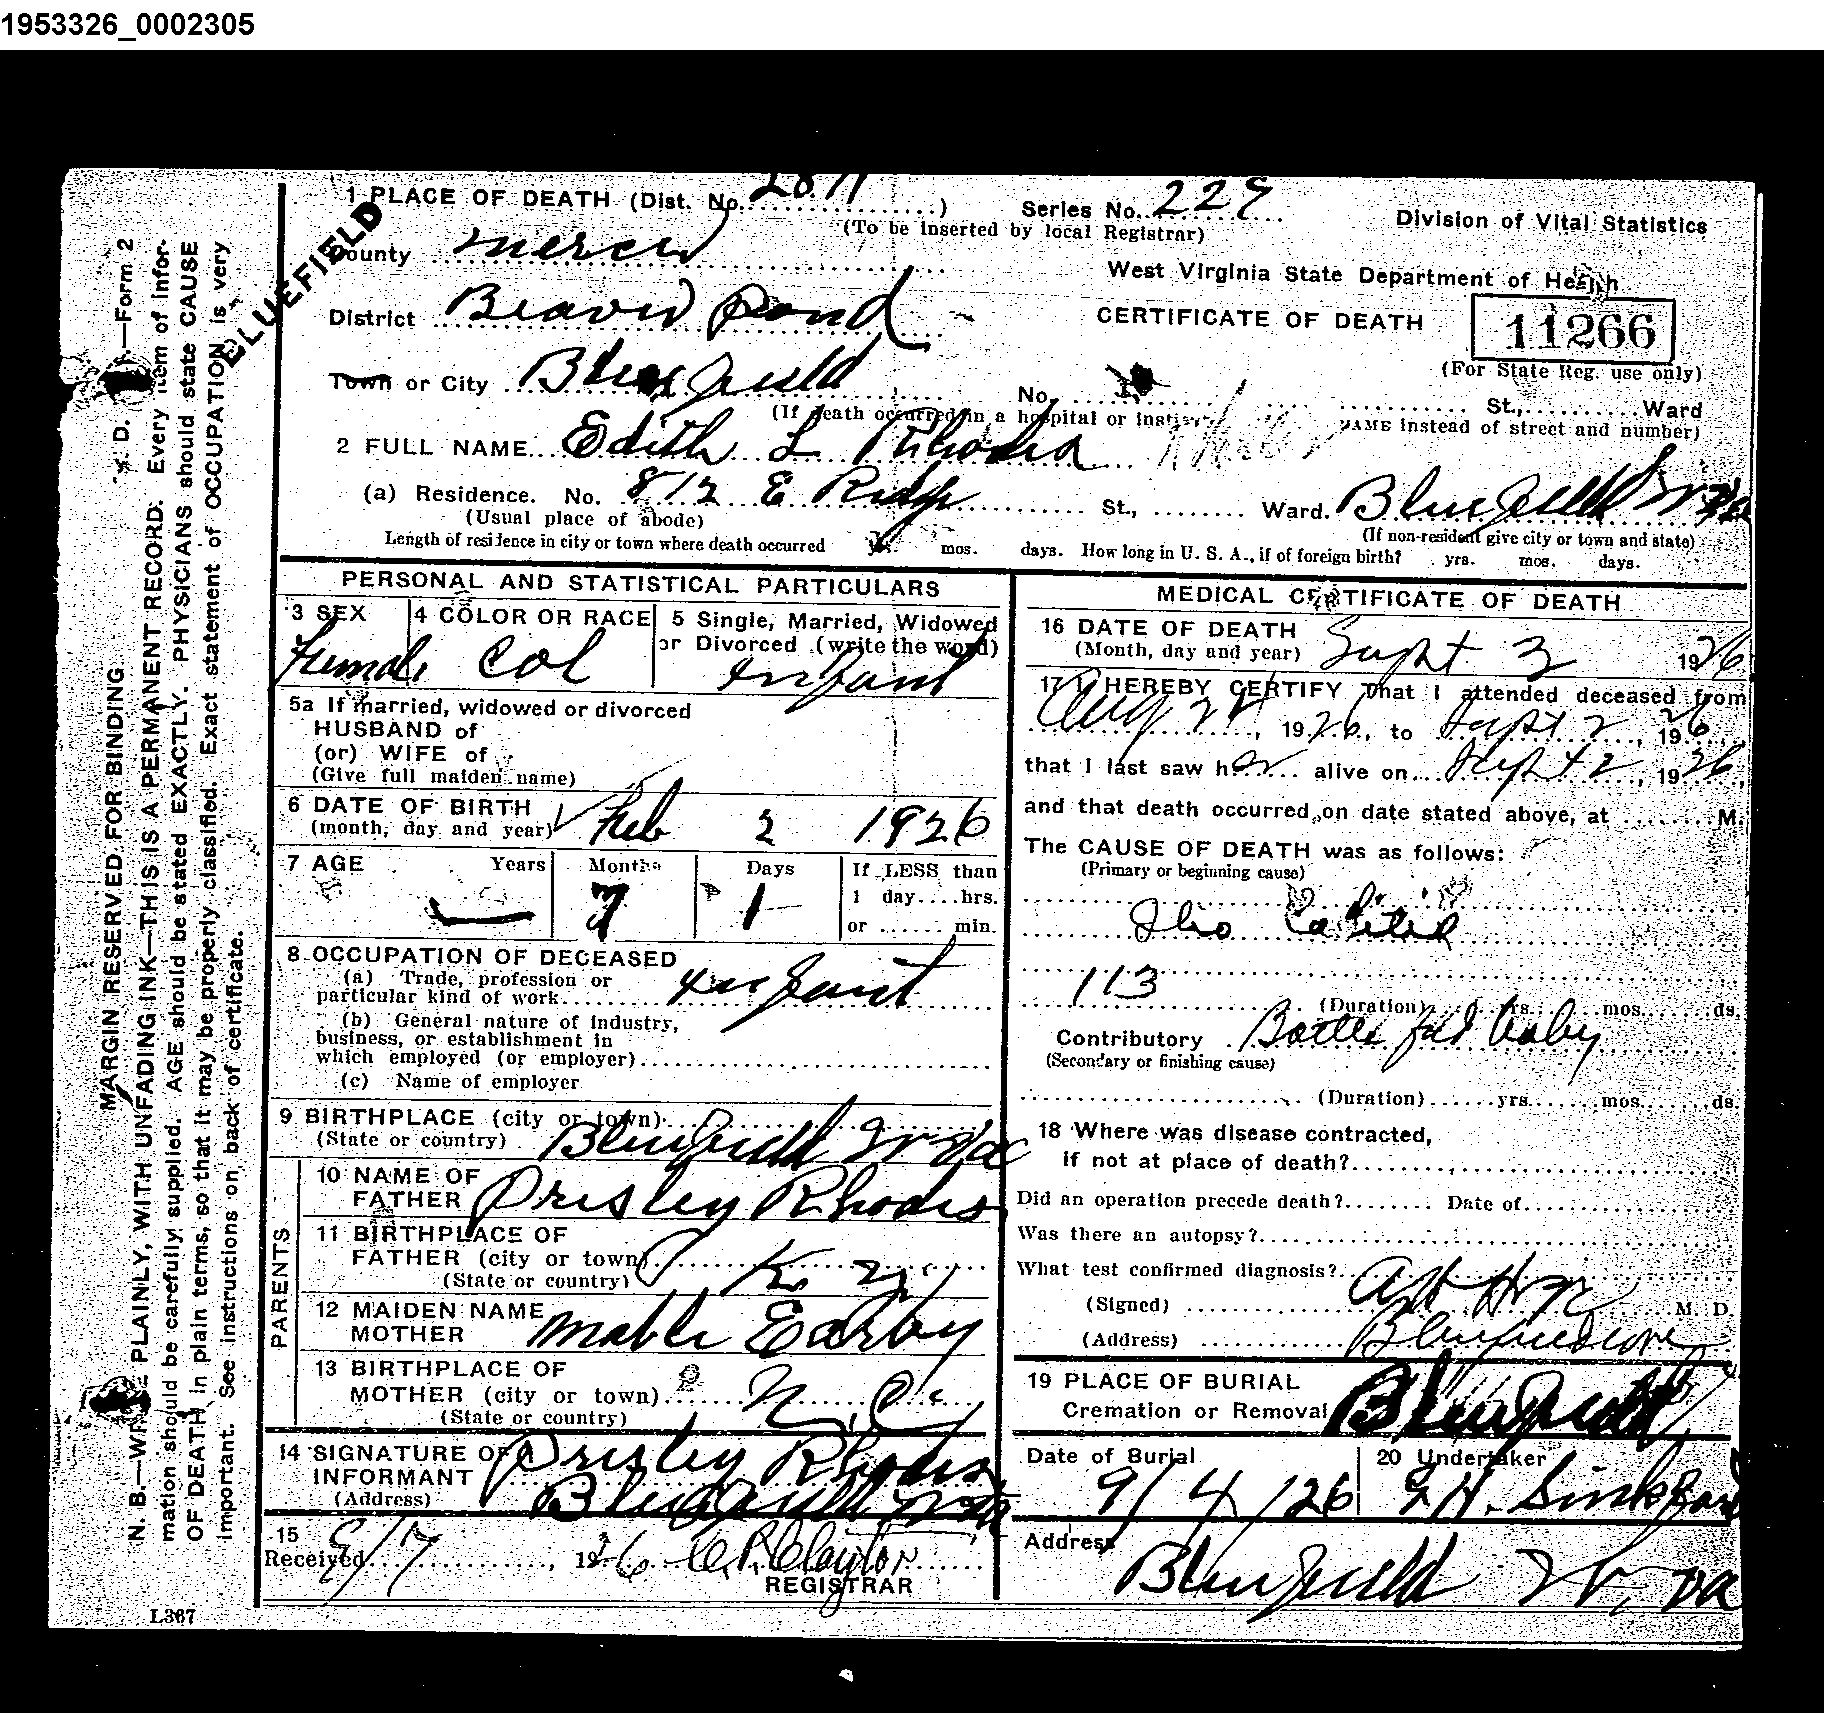 1953326_0002305
1 PLACE OF DEATH (Dist. No. 2811)
Series No. 229
(To be inserted by local Registrar)
Division of Vital Statistics
West Virginia State Department of Health
BLUEFIELD
County Mercer
District Beaver Pond
CERTIFICATE OF DEATH
11266
(For State Reg. use only)
Town or City Bluefield
No. St., Ward
(If death occurred in a hospital or NAME instead of street and number)
2 FULL NAME Edith L Rhodes
(a) Residence. No. 812 E Ridge St., Ward. Bluefield W Va
(Usual place of abode)
(If non-resident give city or town and state)
Length of residence in city or town where death occurred mos. days. How long in U. S. A., if of foreign birth? yrs. mos. days.
PERSONAL AND STATISTICAL PARTICULARS
3 SEX 4 COLOR OR RACE 5 Single, Married, Widowed
or Divorced (write the word)
Female Col Infant
5a If married, widowed or divorced
HUSBAND of
(or) WIFE of
(Give full maiden name)
6 DATE OF BIRTH
(month, day and year) Feb 2 1926
7 AGE Years Months Days If LESS than
1 day....hrs.
or ...... min.
7 1
8 OCCUPATION OF DECEASED
(a) Trade, profession or
particular kind of work Infant
(b) General nature of industry,
business, or establishment in
which employed (or employer)
(c) Name of employer
9 BIRTHPLACE (city or town)
(State or country) Bluefield W Va
PARENTS
10 NAME OF
FATHER Presley Rhodes
11 BIRTHPLACE OF
FATHER (city or town)
(State or country) Ky
12 MAIDEN NAME
MOTHER Mable Earby
13 BIRTHPLACE OF
MOTHER (city or town) N. C.
(State or country)
14 SIGNATURE OF
INFORMANT Presley Rhodes
(Address) Bluefield W Va
15
Received 9/7, 1926 C. R. Clayton
REGISTRAR
L367
MEDICAL CERTIFICATE OF DEATH
16 DATE OF DEATH
(Month, day and year) Sept 3 1926
17 I HEREBY CERTIFY That I attended deceased from
Aug 1926, to Sept 2, 1926,
that I last saw her alive on Sept 2, 1926,
and that death occurred, on date stated above, at M.
The CAUSE OF DEATH was as follows:
(Primary or beginning cause)
Ilio Colitis
113
(Duration) yrs. mos. ds.
Contributory Bottle fed baby
(Secondary or finishing cause)
(Duration) yrs. mos. ds.
18 Where was disease contracted,
if not at place of death?
Did an operation precede death? Date of
Was there an autopsy?
What test confirmed diagnosis?
(Signed) M. D.
(Address)
19 PLACE OF BURIAL
Cremation or Removal Bluefield
Date of Burial 20 Undertaker
9/4/26 H. Sinkford
Address
Bluefield W. Va
MARGIN RESERVED FOR BINDING
N. B.—WRITE PLAINLY, WITH UNFADING INK—THIS IS A PERMANENT RECORD. Every item of infor-
mation should be carefully supplied. AGE should be stated EXACTLY. PHYSICIANS should state CAUSE
OF DEATH in plain terms, so that it may be properly classified. Exact statement of OCCUPATION is very
important. See instructions on back of certificate.
D.—Form 2